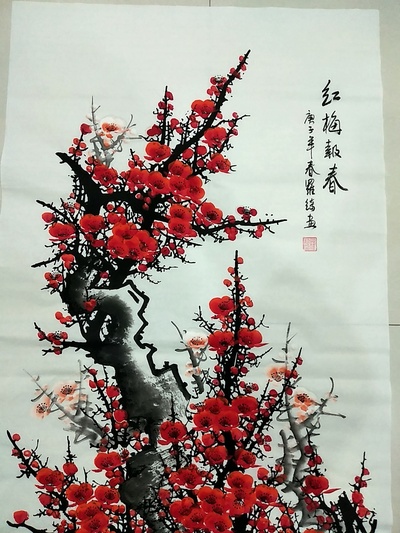 红梅报春
庚子年春罗绮画